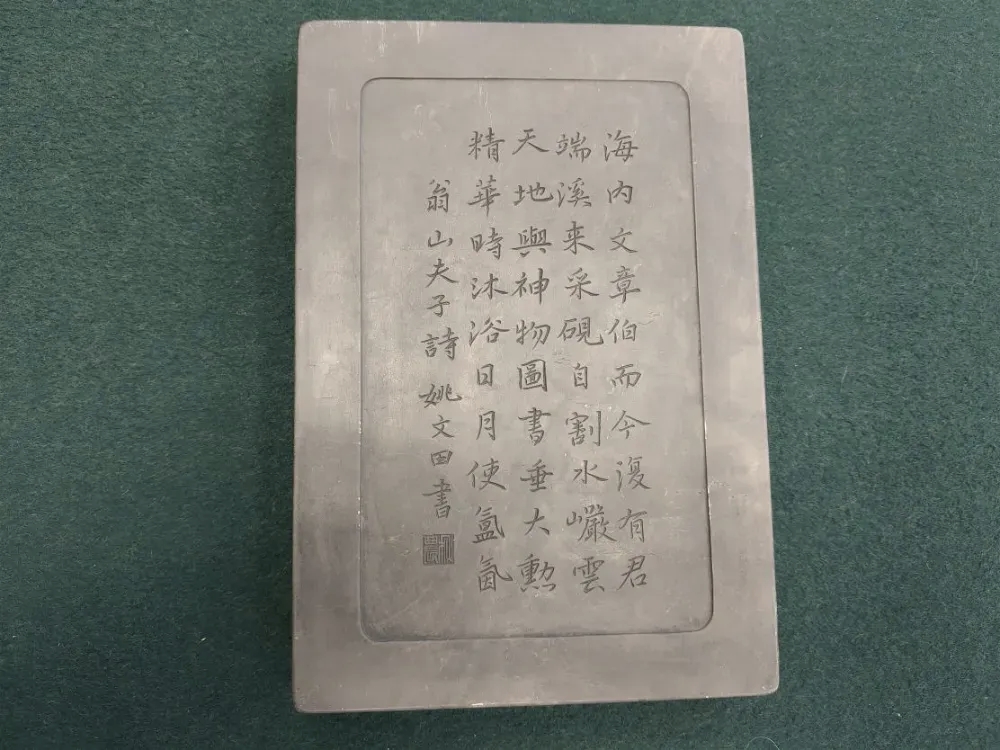 海内文章伯而今復有君
端溪来采硯自割水巖雲
天地與神物圖書垂大勲
精華時沐浴日月使氳氤
翁山夫子詩 姚文田書